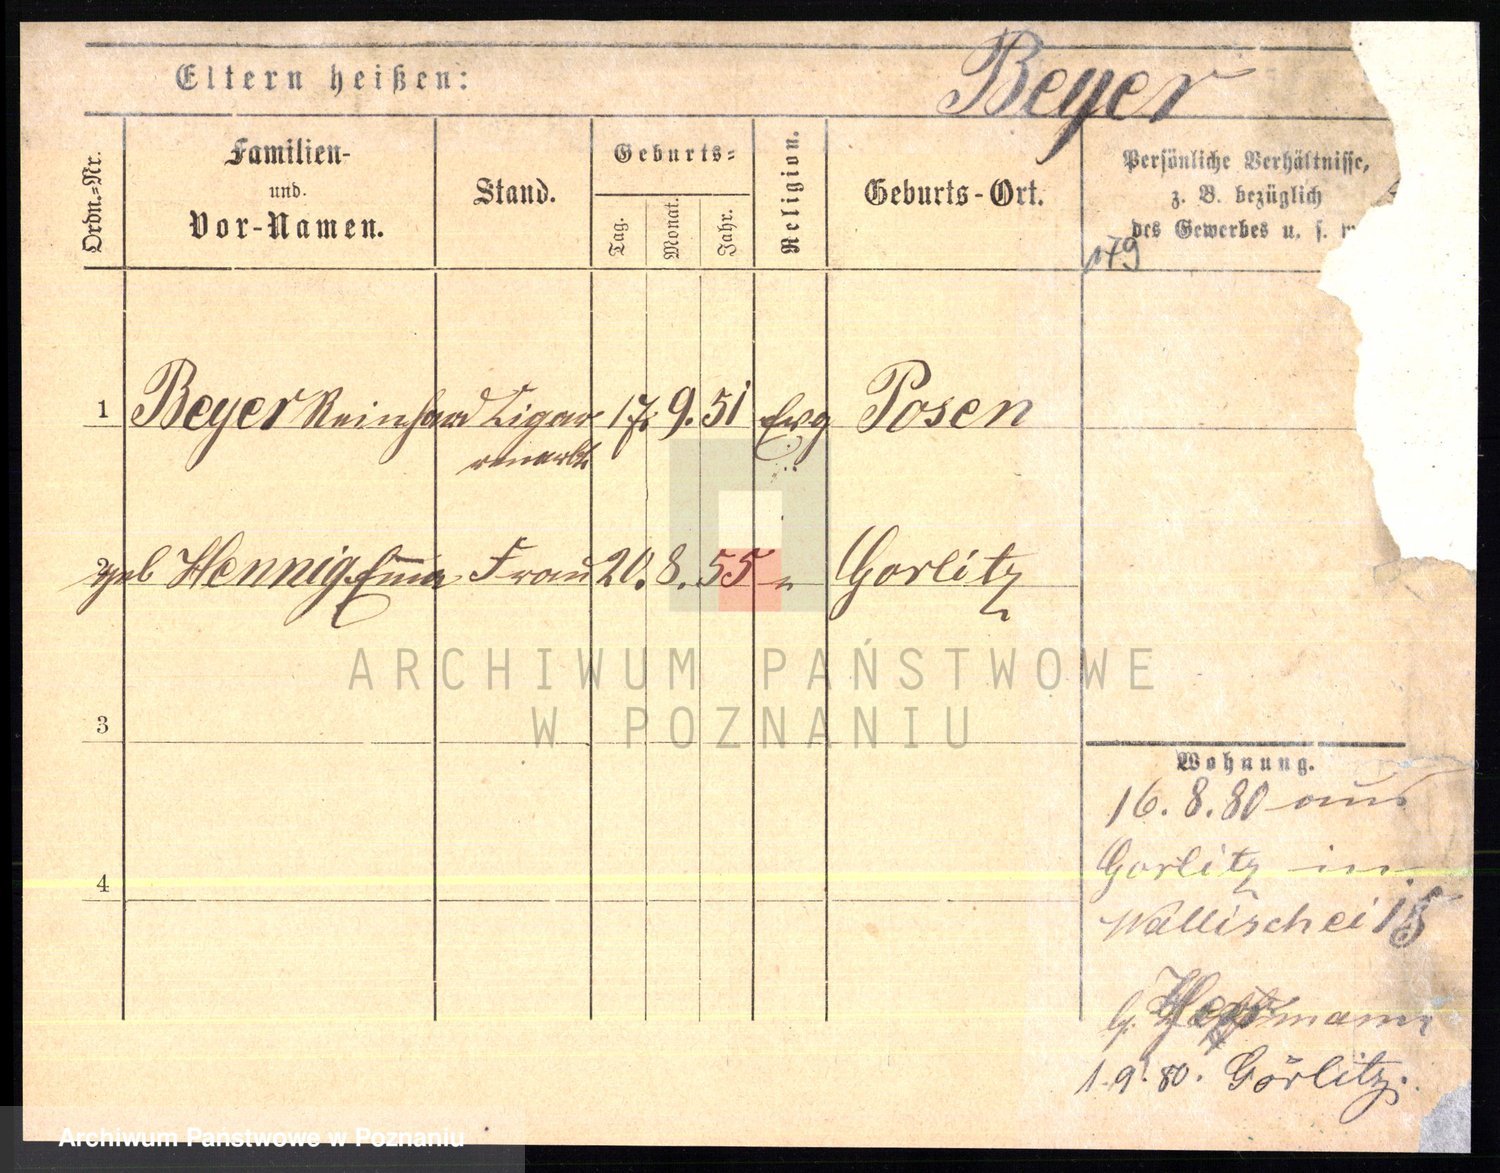 Eltern heißen: Beyer
Ordn.-Nr.
Familien-
und.
Vor-Namen.
Stand.
Geburts-
Tag.
Monat.
Jahr.
Religion.
Geburts-Ort.
Persönliche Verhältnisse,
z. B. bezüglich
des Gewerbes u. s. w
179
1 Beyer Reinhard Zigar 17. 9. 51 Evg Posen
renarbtr
2 geb Hennig Ema Frau 20. 8. 55 " Gorlitz
3
4
ARCHIWUM PAŃSTWOWE
W POZNANIU
Wohnung.
16. 8. 80 aus
Gorlitz in
Wallischei 15
b. Herrmann
1. 9. 80. Görlitz.
Archiwum Państwowe w Poznaniu